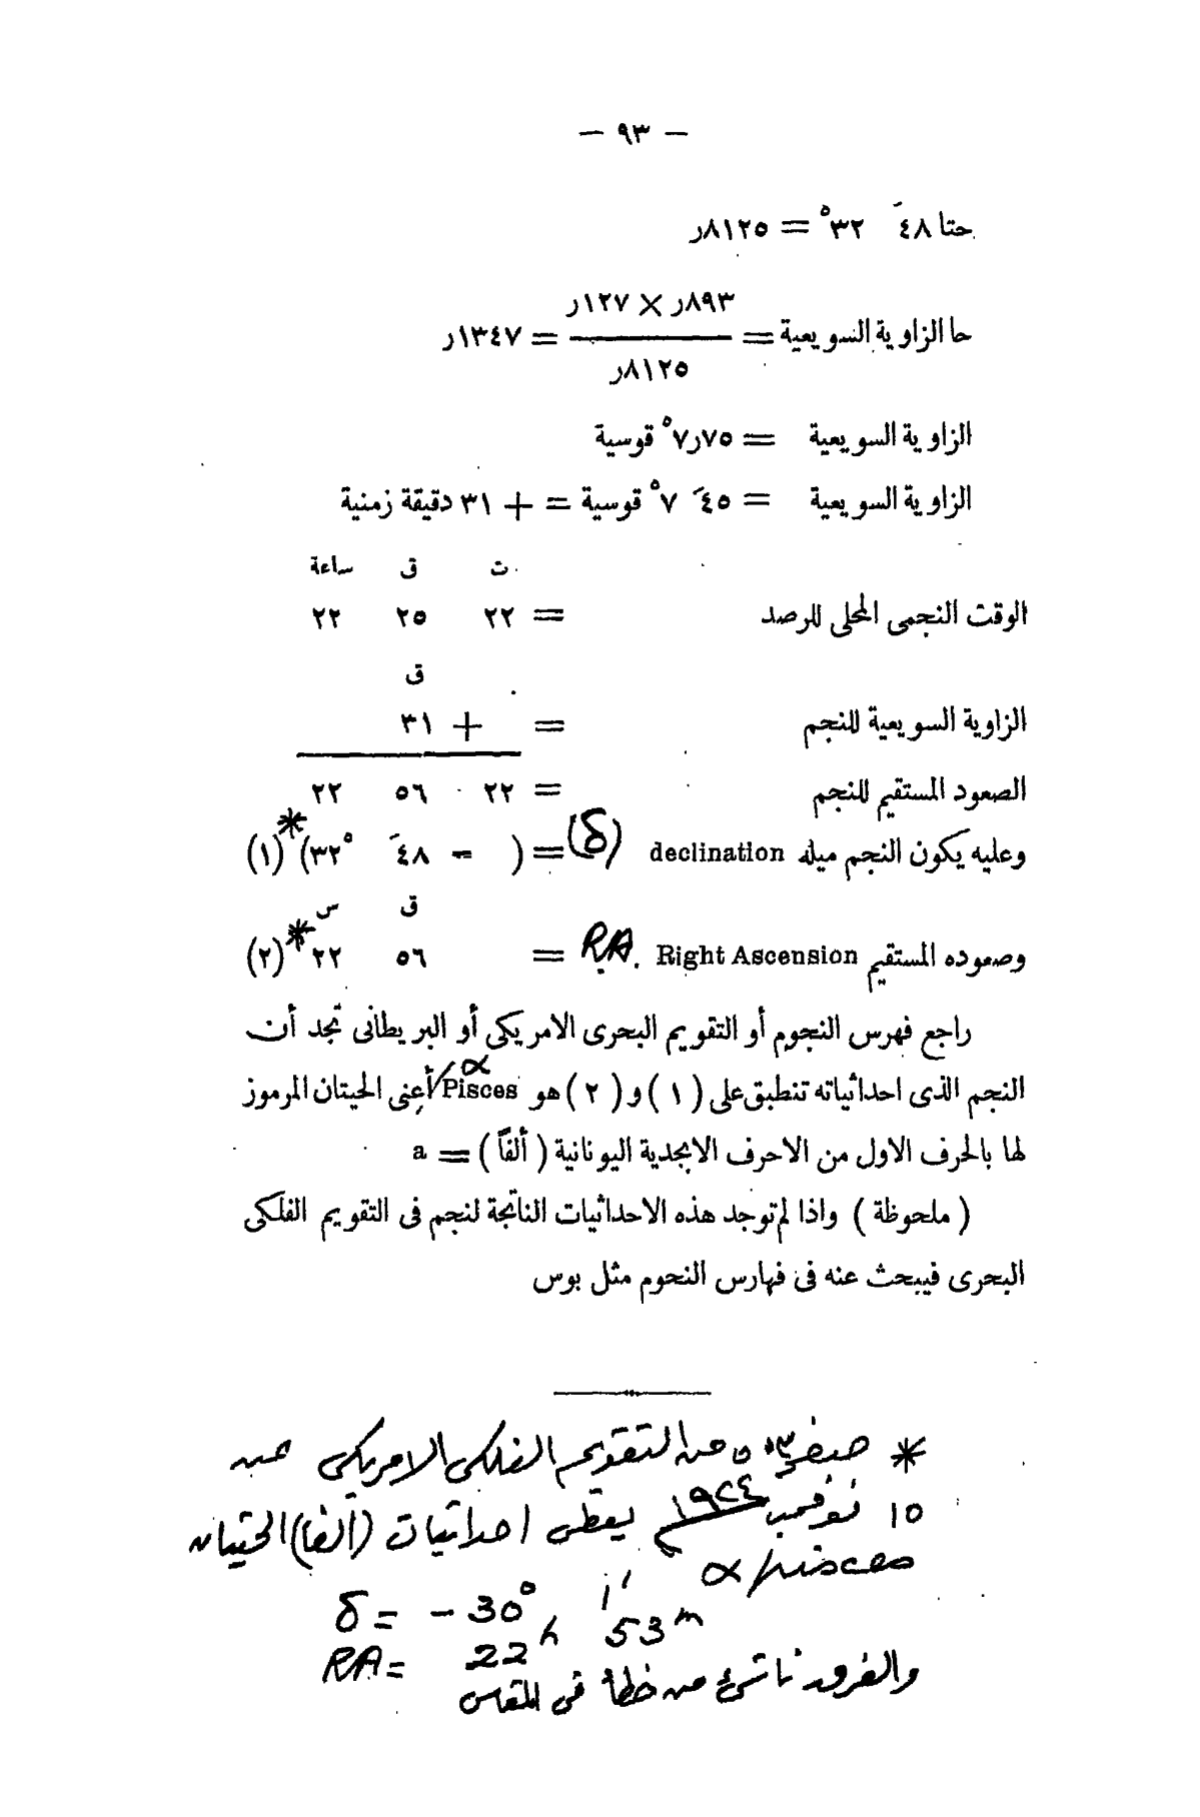 — ٩٣ —
حتا ٤٨َ ٣٢° = ٨١٢٥ر
حا الزاوية السويعية = ٨٩٣ر × ١٢٧ر / ٨١٢٥ر = ١٣٤٧ر
الزاوية السويعية = ٧٥ر٧° قوسية
الزاوية السويعية = ٤٥َ ٧° قوسية = + ٣١ دقيقة زمنية
ث ق ساعة
الوقت النجمى المحلى للرصد = ٢٢ ٢٥ ٢٢
ق
الزاوية السويعية للنجم = + ٣١
الصعود المستقيم للنجم = ٢٢ ٥٦ ٢٢
وعليه يكون النجم ميله declination (δ) = ( – ٤٨َ ٣٢°) * (١)
ق س
وصعوده المستقيم Right Ascension R.A. = ٥٦ ٢٢ * (٢)
راجع فهرس النجوم أو التقويم البحرى الامريكى أو البريطانى تجد أن
النجم الذى احداثياته تنطبق على (١) و (٢) هو α/Pisces أعنى الحيتان المرموز
لها بالحرف الاول من الاحرف الابجدية اليونانية (ألفاً) = a
(ملحوظة) واذا لم توجد هذه الاحداثيات الناتجة لنجم فى التقويم الفلكى
البحرى فيبحث عنه فى فهارس النجوم مثل بوس
* من التقويم الفلكى الامريكى عن
١٥ نوفمبر ١٩٢٤ يعطى احداثيات (ألفا) الحيتان
α/pisces
δ = - 30° 1'
RA = 22h 53m
والفرق ناشئ من خطأ فى المقاس